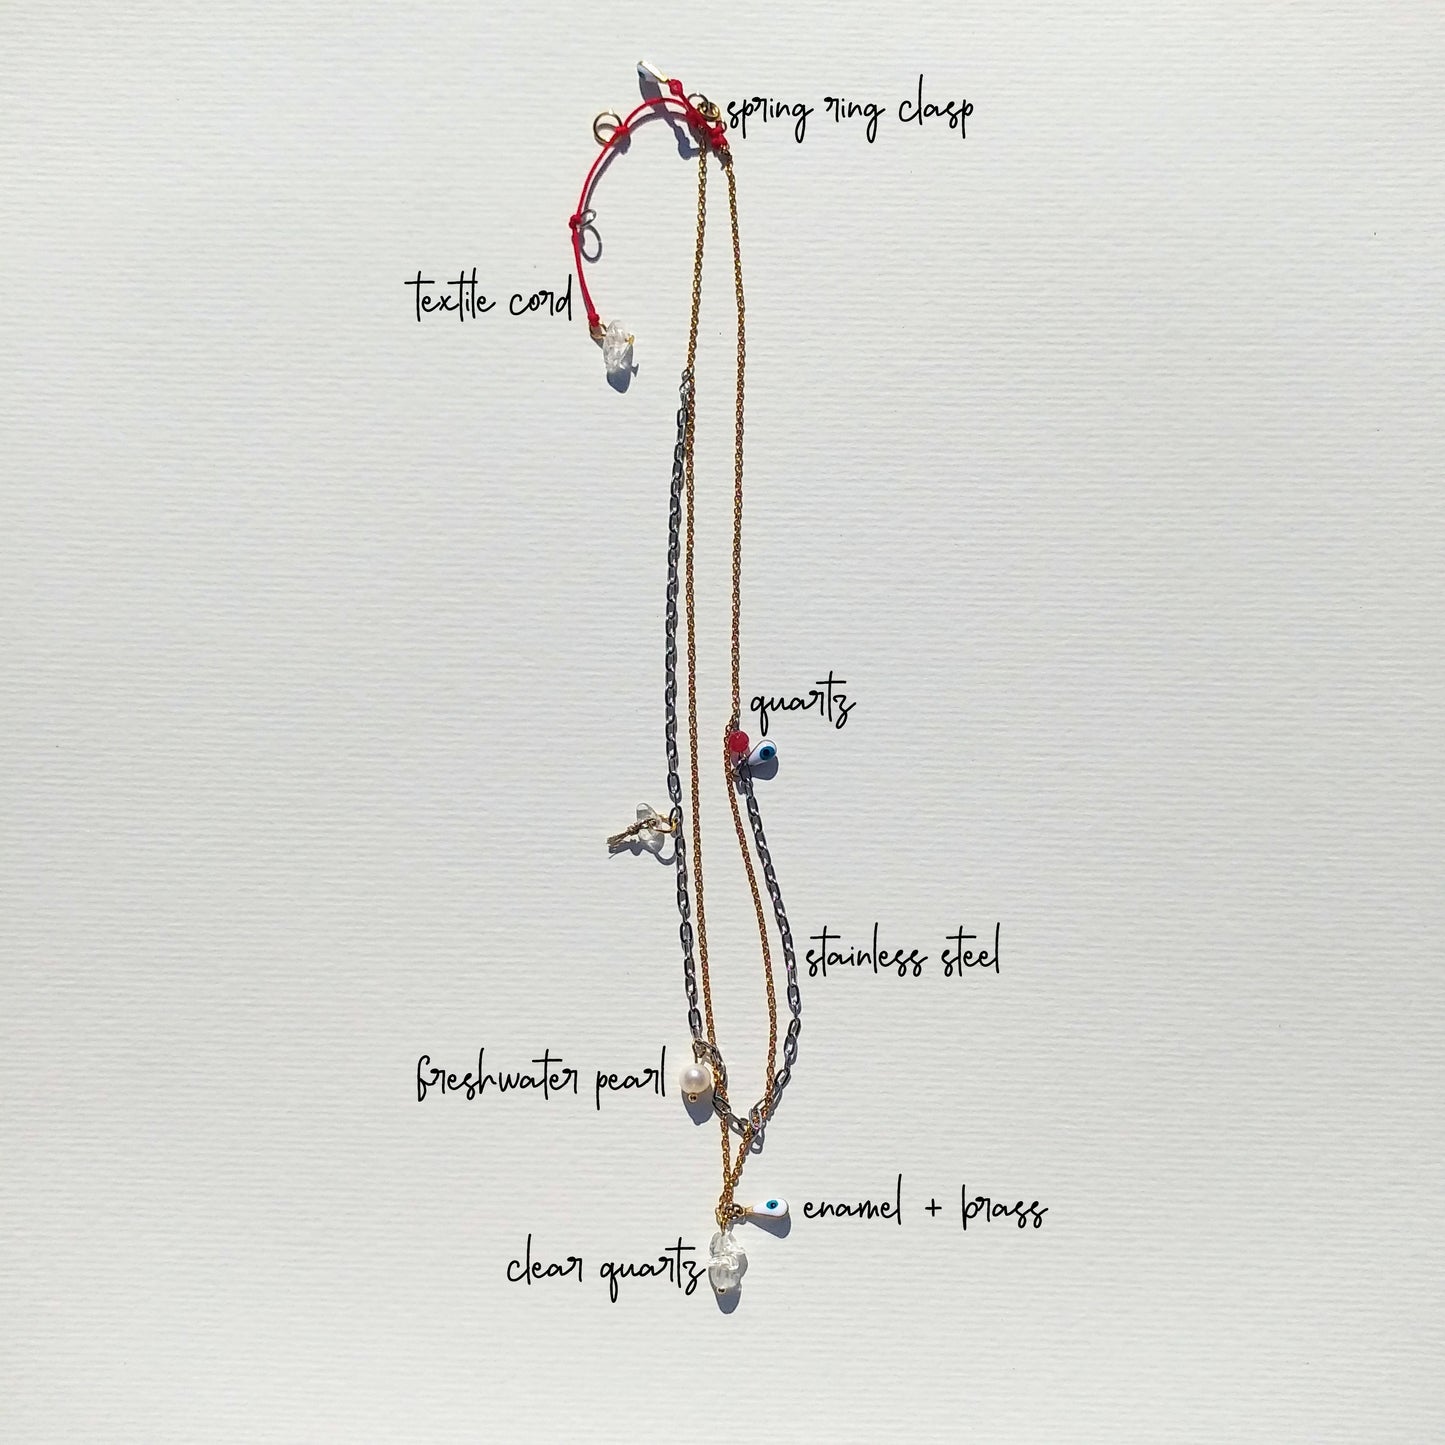 spring ring clasp
textile cord
quartz
stainless steel
freshwater pearl
enamel + brass
clear quartz